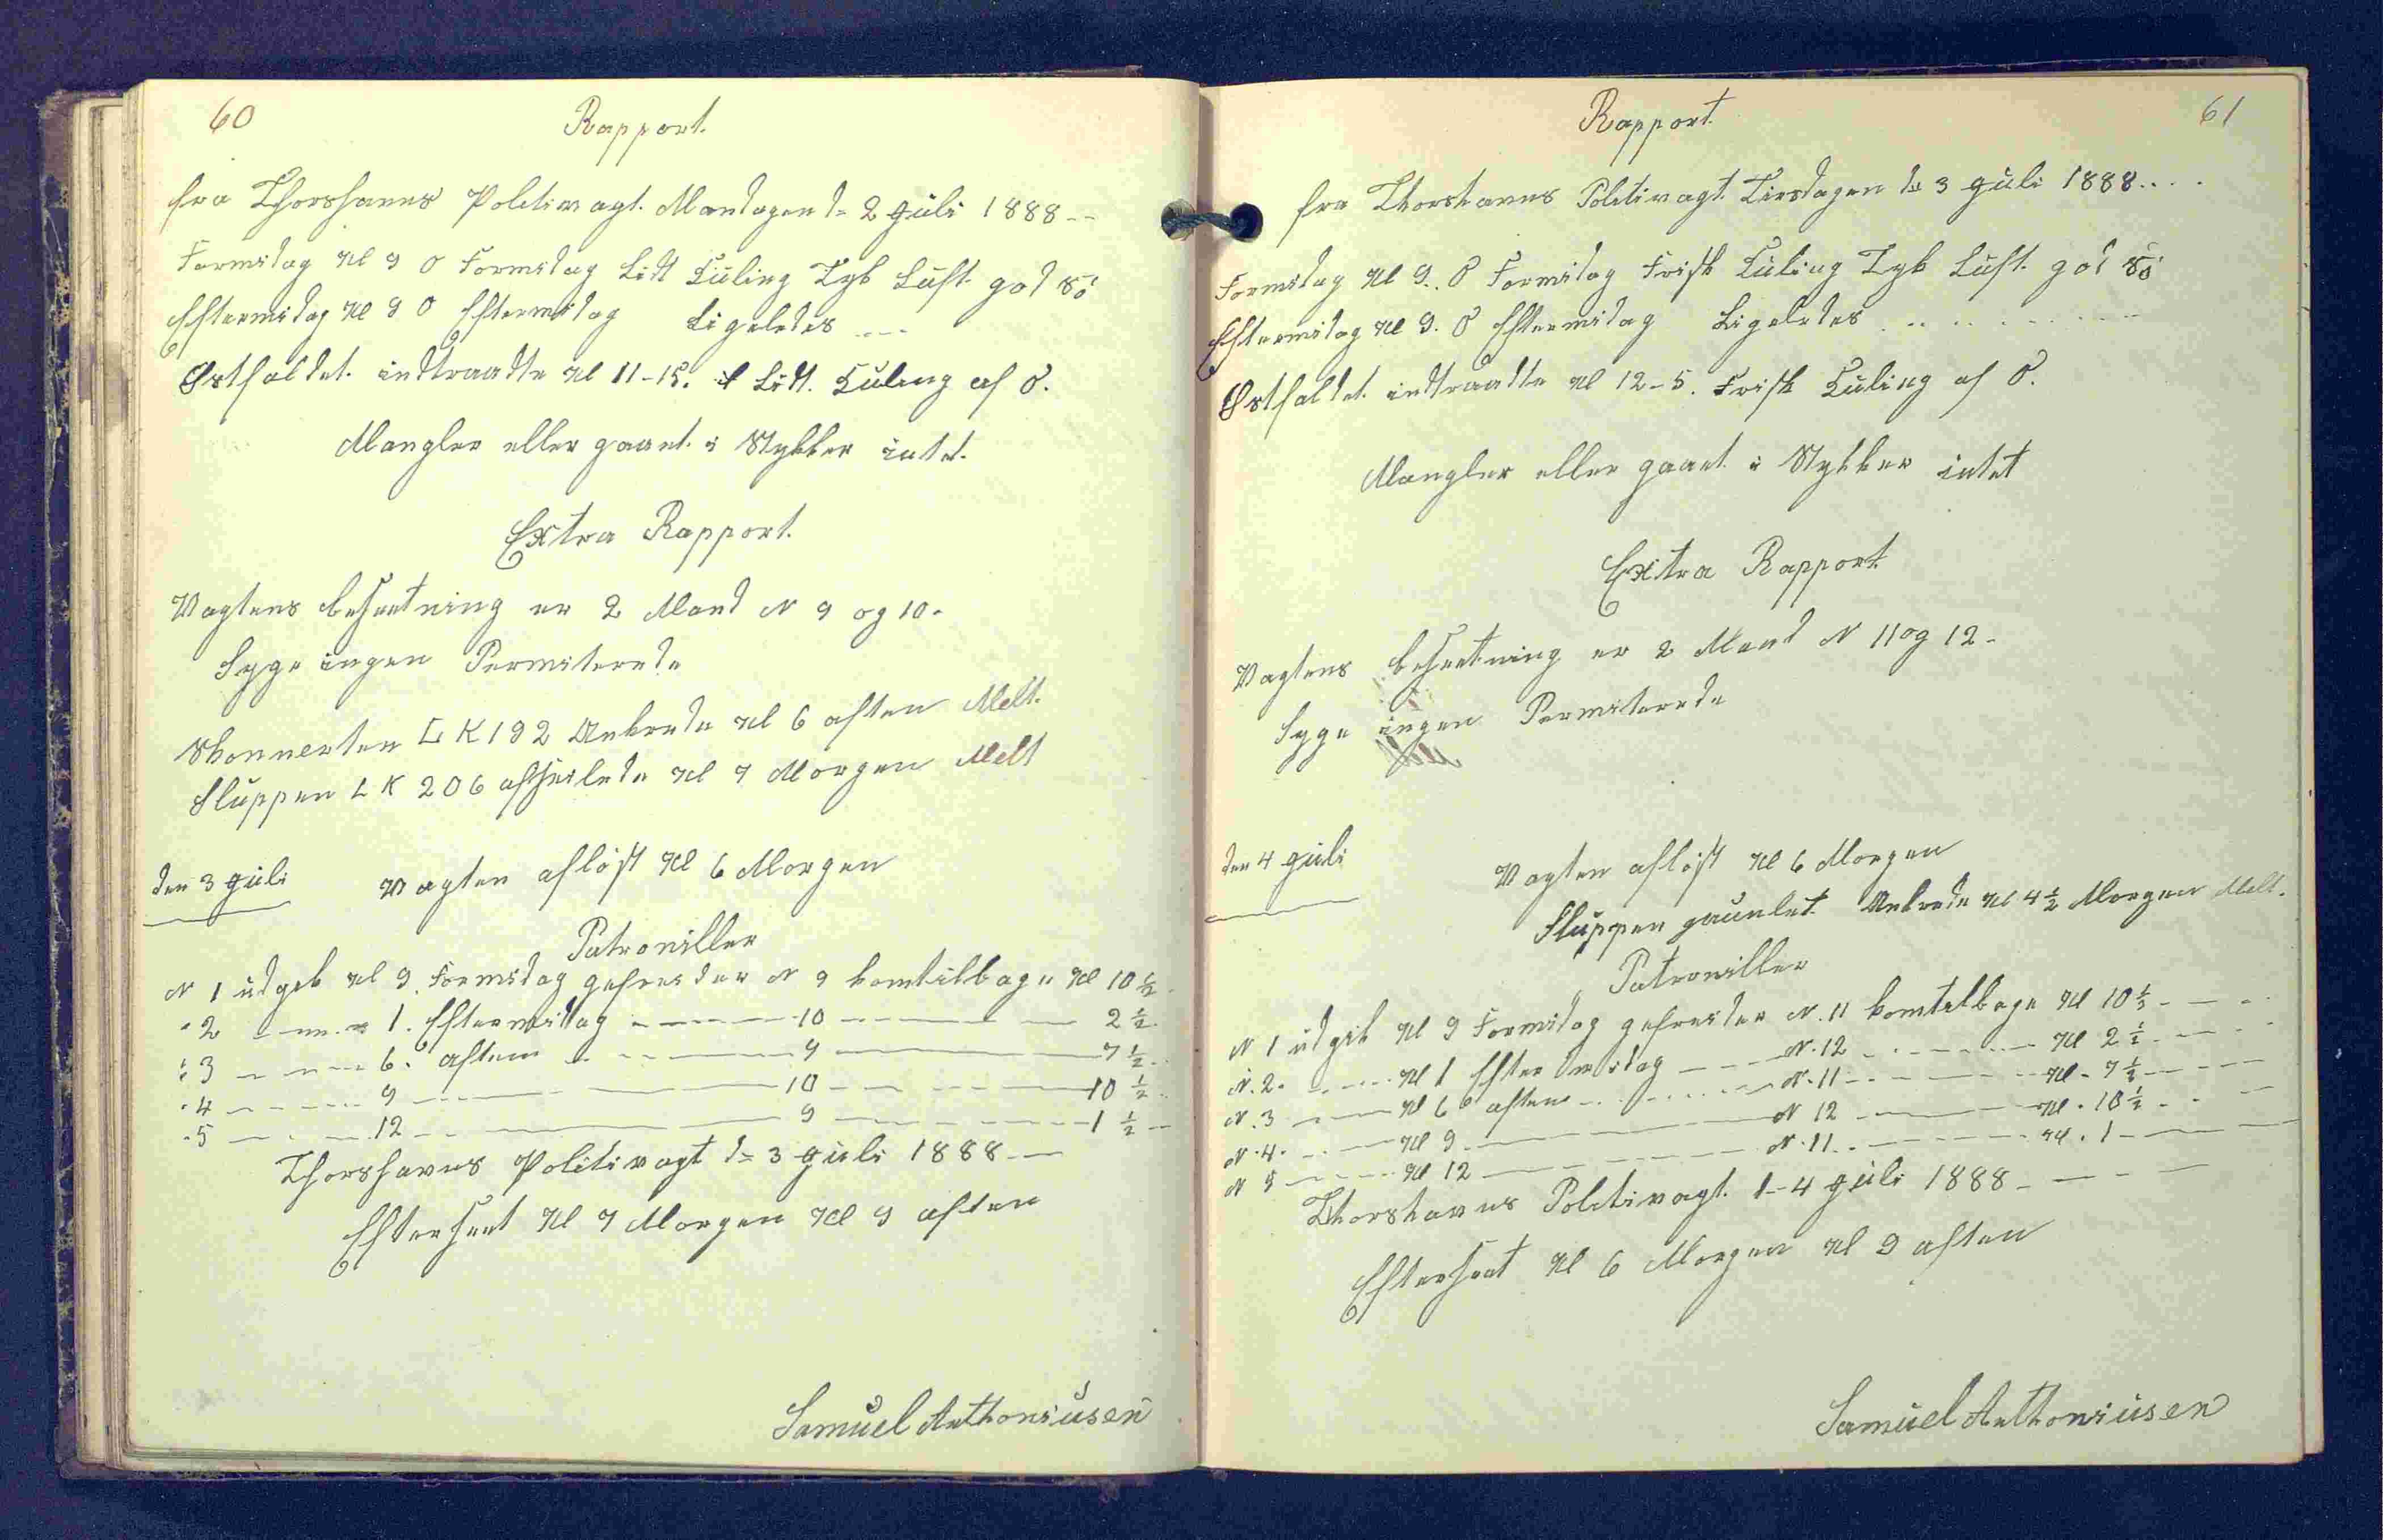 60
Rapport.
fra Thorshavns Politivagt. Mandagen d= 2 Juli 1888 --
Formidag Kl 9 O Formidag Lidt Kuling Tyk Luft god Sö
Eftermidag Kl 9 O Eftermidag Ligeledes ---
Østfaldet. indtraadte Kl 11-15. Lidt. Kuling af O.
Mangler eller gaaet. i Stykker intet.
Extra Rapport.
Vagtens besætning er 2 Mand N 9 og 10.
Syge ingen Permiterede
Skonnerten LK 192 Ankrede Kl 6 aften Melt.
Sluppen LK 206 afseilede Kl 7 Morgen Melt
den 3 Juli Vagten aflöst Kl 6 Morgen
Patroniller
N 1 udgik Kl 9. Formidag gefreider N 9 kom tilbage Kl 10 ½
" 2 - - - 1. Eftermidag - - - 10 - - - 2 ½
" 3 - - - 6. aften - - - 9 - - - 7 ½
" 4 - - - 9 - - - 10 - - - 10 ½
" 5 - - - 12 - - - 9 - - - 1 ½
Thorshavns Politivagt d= 3 Juli 1888 --
Efterseet Kl 7 Morgen Kl 9 aften
Samuel Anthoniusen
61
Rapport.
fra Thorshavns Politivagt. Tirsdagen d= 3 Juli 1888....
Formidag Kl 9. O Formidag Frisk Kuling Tyk Luft. god Sö
Eftermidag Kl 9. O Eftermidag Ligeledes - - -
Østfaldet. indtraadte Kl 12-5. Frisk Kuling af O.
Mangler eller gaaet. i Stykker intet
Extra Rapport
Vagtens besætning er 2 Mand N 11 og 12 -
Syge ingen Permiterede
den 4 Juli Vagten aflöst Kl 6 Morgen
Sluppen Ankrede Kl 4 ½ Morgen Melt.
Patroniller
N 1 udgik Kl 9 Formidag gefreider N. 11 kom tilbage Kl 10 ½ - - -
N. 2. - - - Kl 1 Eftermidag - - - N. 12 - - - Kl 2 ½ - - -
N. 3 - - - Kl 6 aften - - - N. 11 - - - Kl. 7 ½ - - -
N. 4. - - - Kl 9 - - - N 12 - - - Kl. 10 ½ - - -
N 5 - - - Kl 12 - - - N. 11 - - - Kl. 1 - - -
Thorshavns Politivagt. d- 4 Juli 1888 - - -
Efterseet Kl 6 Morgen Kl 9 aften
Samuel Anthoniusen